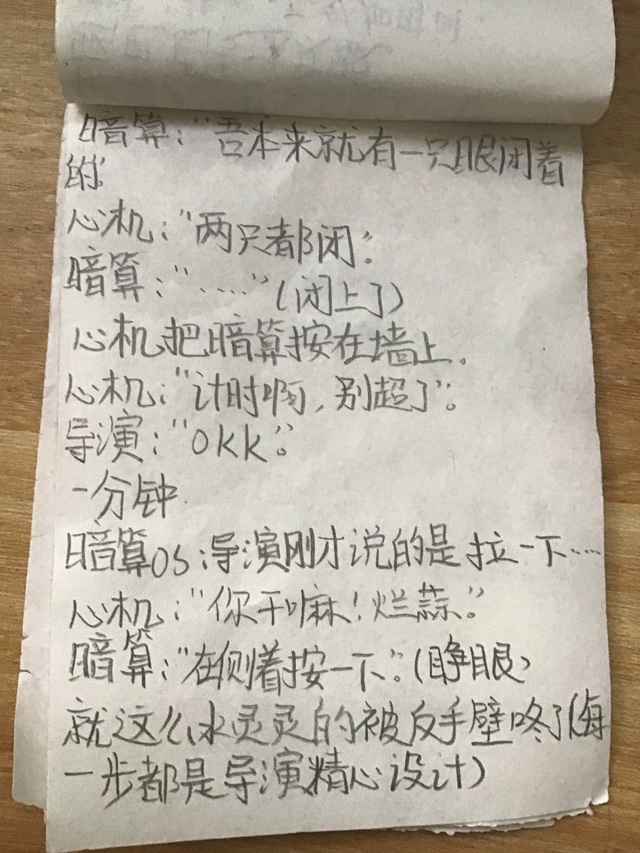 暗算："吾本来就有一只眼闭着
的"
心机："两只都闭."
暗算："·····"(闭上了)
心机把暗算按在墙上。
心机："计时啊,别超了"。
导演："OKK"。
一分钟.
暗算OS:导演刚才说的是拉一下……
心机："你干嘛!烂蒜。"
暗算："在侧着按一下"。(睁眼)
就这么水灵灵的被反手壁咚了(每
一步都是导演精心设计)